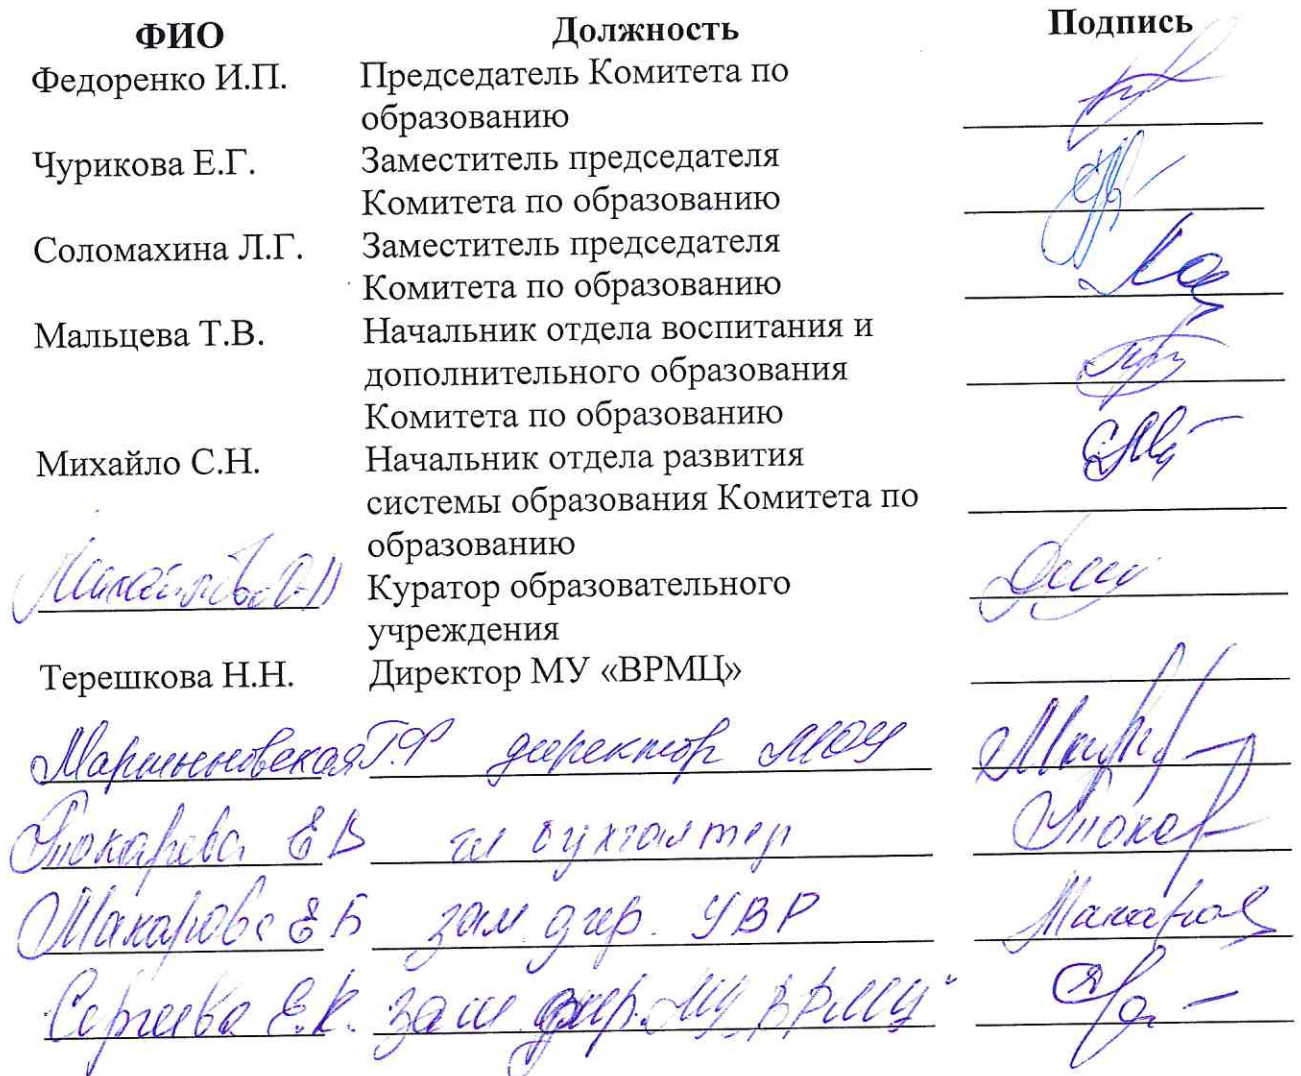 ФИО Должность Подпись
Федоренко И.П. Председатель Комитета по
образованию
Чурикова Е.Г. Заместитель председателя
Комитета по образованию
Соломахина Л.Г. Заместитель председателя
Комитета по образованию
Мальцева Т.В. Начальник отдела воспитания и
дополнительного образования
Комитета по образованию
Михайло С.Н. Начальник отдела развития
системы образования Комитета по
образованию
Куратор образовательного
учреждения
Терешкова Н.Н. Директор МУ «ВРМЦ»
Мартыновская Г.Ф директор МОУ
Токарева Е В гл бухгалтер Токар
Макарова Е Б зам дир. УВР Макарова
Сергеева Е.К. зам дир. МУ "ВРМЦ"